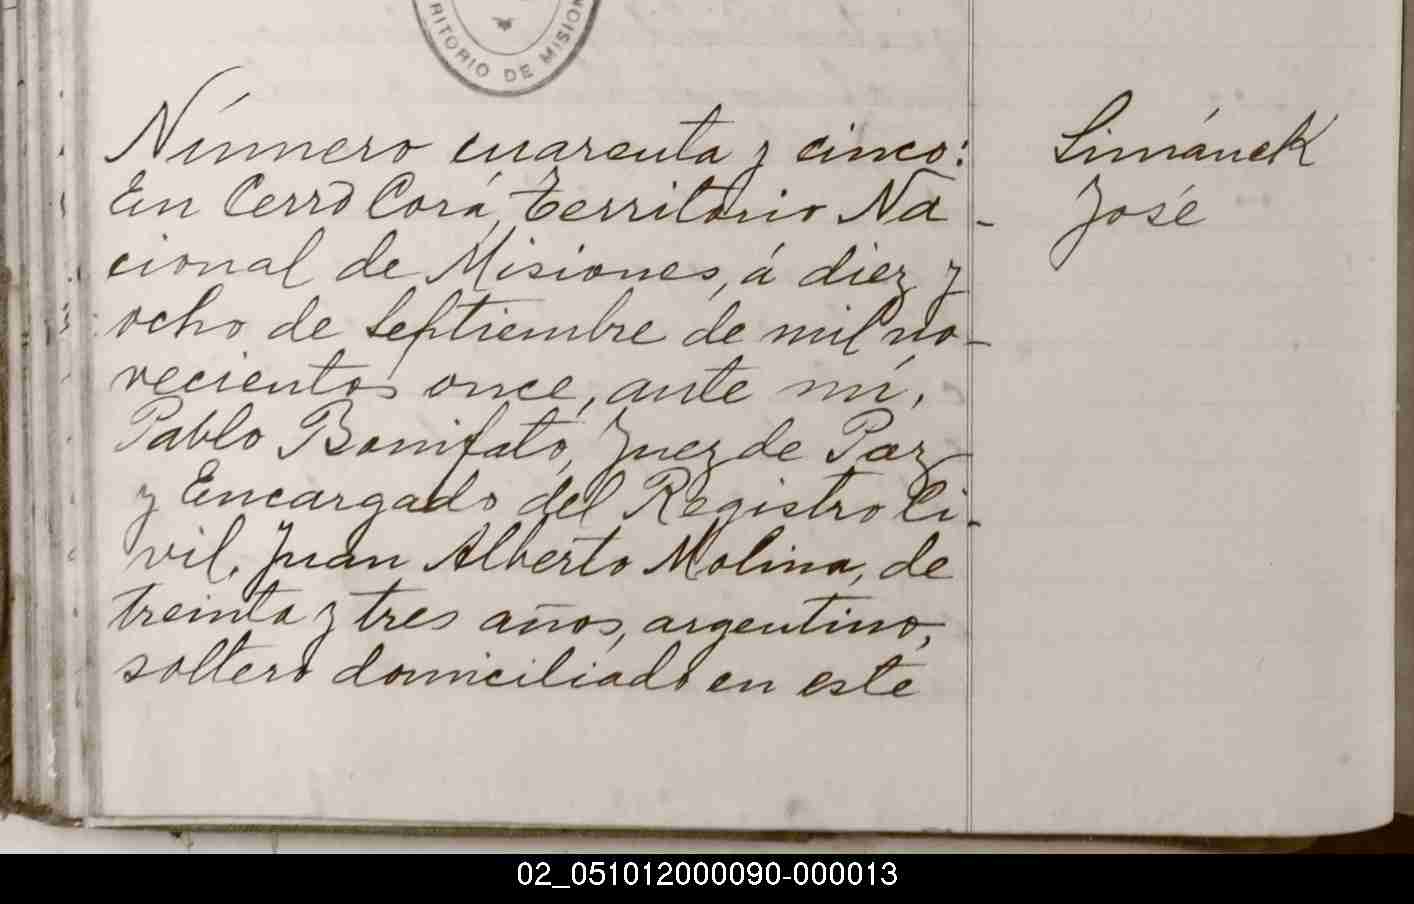 RITORIO DE MISION
Número cuarenta y cinco:
En Cerro Corá, Territorio Na-
cional de Misiones, á diez y
ocho de Septiembre de mil no-
vecientos once, ante mí,
Pablo Bonifato, Juez de Paz
y Encargado del Registro Ci-
vil, Juan Alberto Molina, de
treinta y tres años, argentino,
soltero domiciliado en este
Simánek
José
02_051012000090-000013